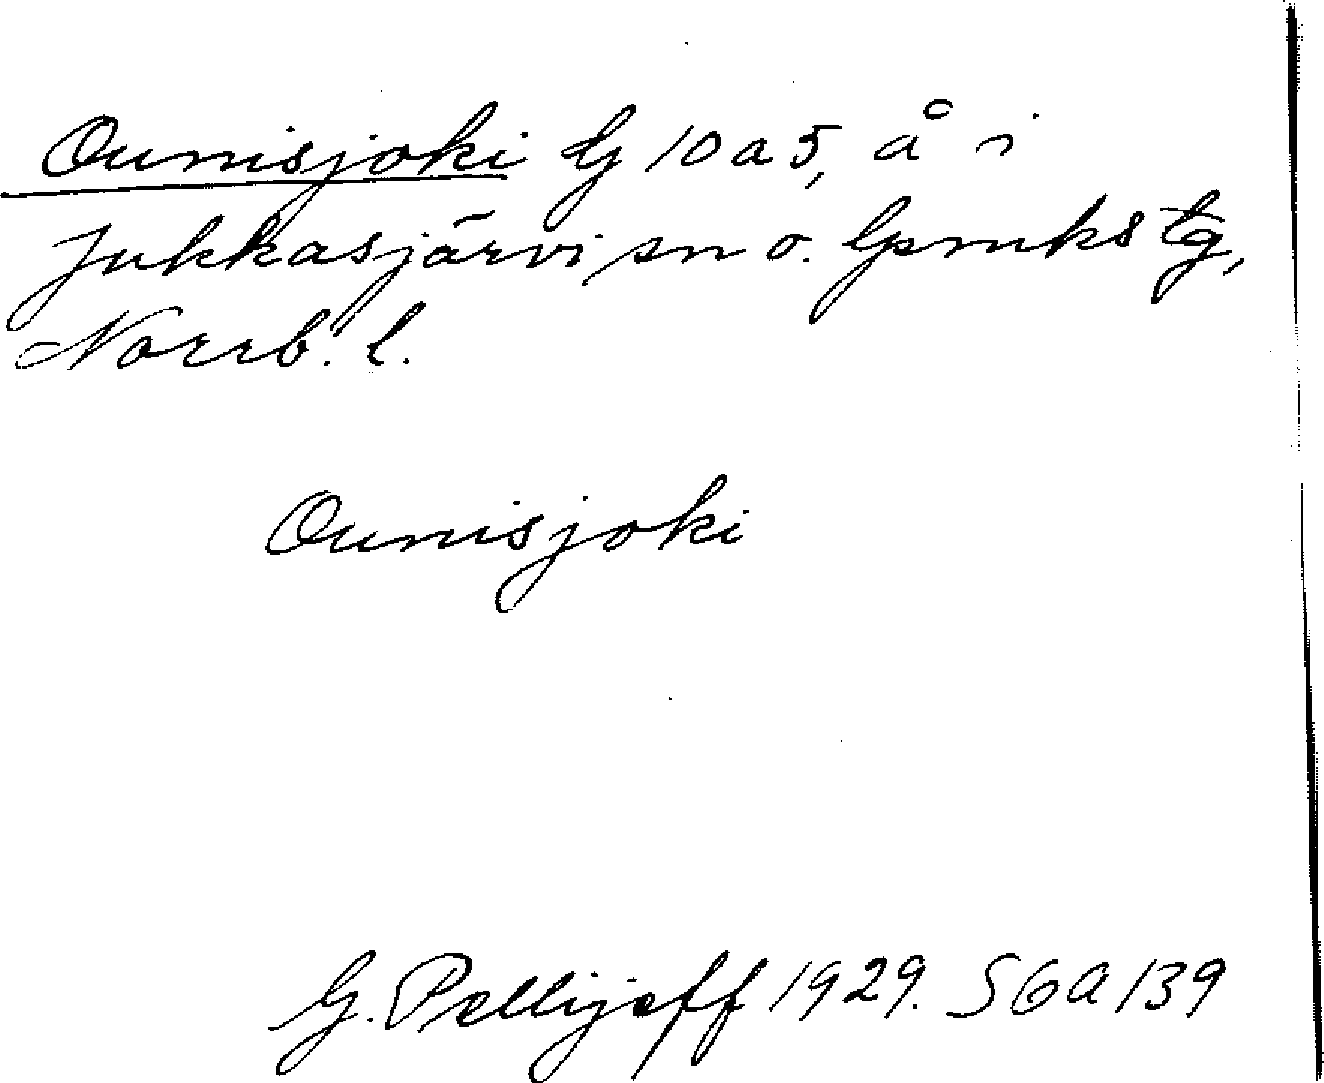 Ounisjoki G 10 a 5, å i
Jukkasjärvi sn o. lpmks tg,
Norrb. l.
Ounisjoki
G. Pellijeff 1929. SGA 139